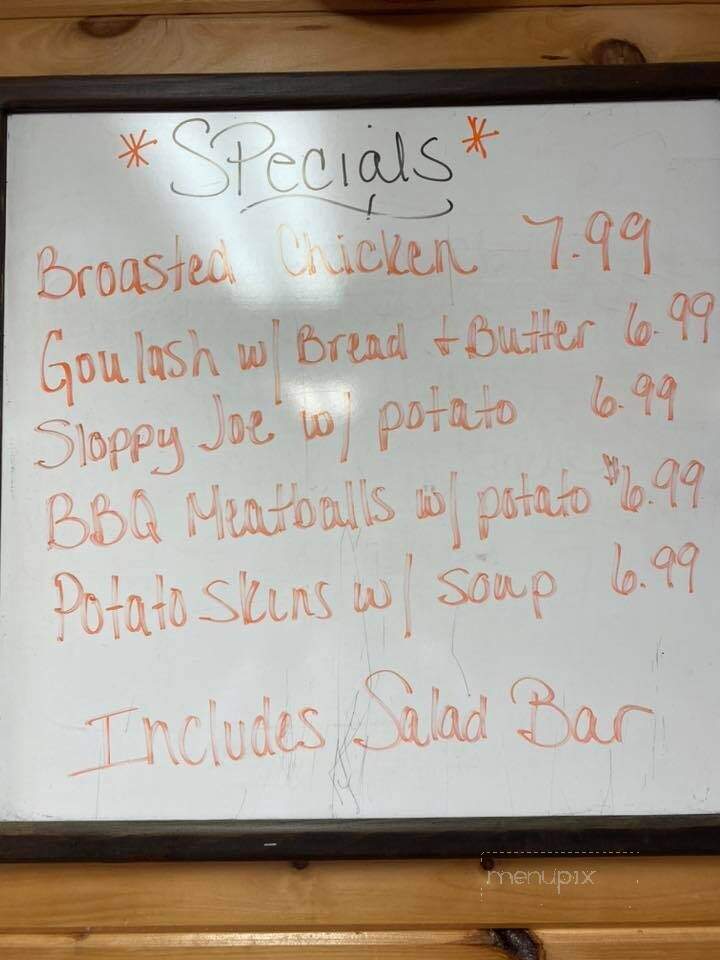 * Specials *
Broasted Chicken 7.99
Goulash w/ Bread + Butter 6.99
Sloppy Joe w/ potato 6.99
BBQ Meatballs w/ potato $6.99
Potato Skins w/ soup 6.99
Includes Salad Bar
menupix